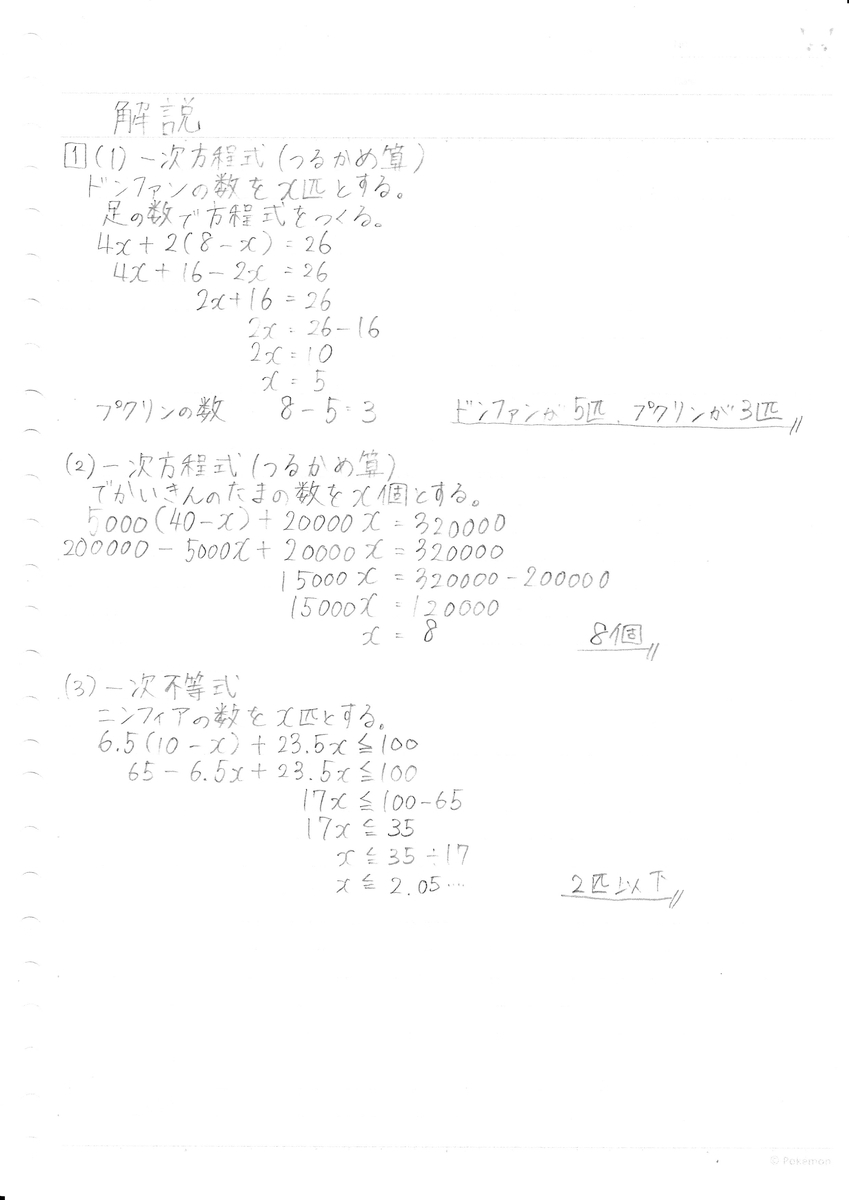 解説
1 (1) 一次方程式 (つるかめ算)
ドンファンの数をx匹とする。
足の数で方程式をつくる。
4x + 2(8 - x) = 26
4x + 16 - 2x = 26
2x + 16 = 26
2x = 26 - 16
2x = 10
x = 5
プクリンの数 8 - 5 = 3 ドンファンが5匹、プクリンが3匹
(2) 一次方程式 (つるかめ算)
でかいきんのたまの数をx個とする。
5000(40 - x) + 20000x = 320000
200000 - 5000x + 20000x = 320000
15000x = 320000 - 200000
15000x = 120000
x = 8 8個
(3) 一次不等式
ニンフィアの数をx匹とする。
6.5(10 - x) + 23.5x ≦ 100
65 - 6.5x + 23.5x ≦ 100
17x ≦ 100 - 65
17x ≦ 35
x ≦ 35 ÷ 17
x ≦ 2.05… 2匹以下
© Pokémon